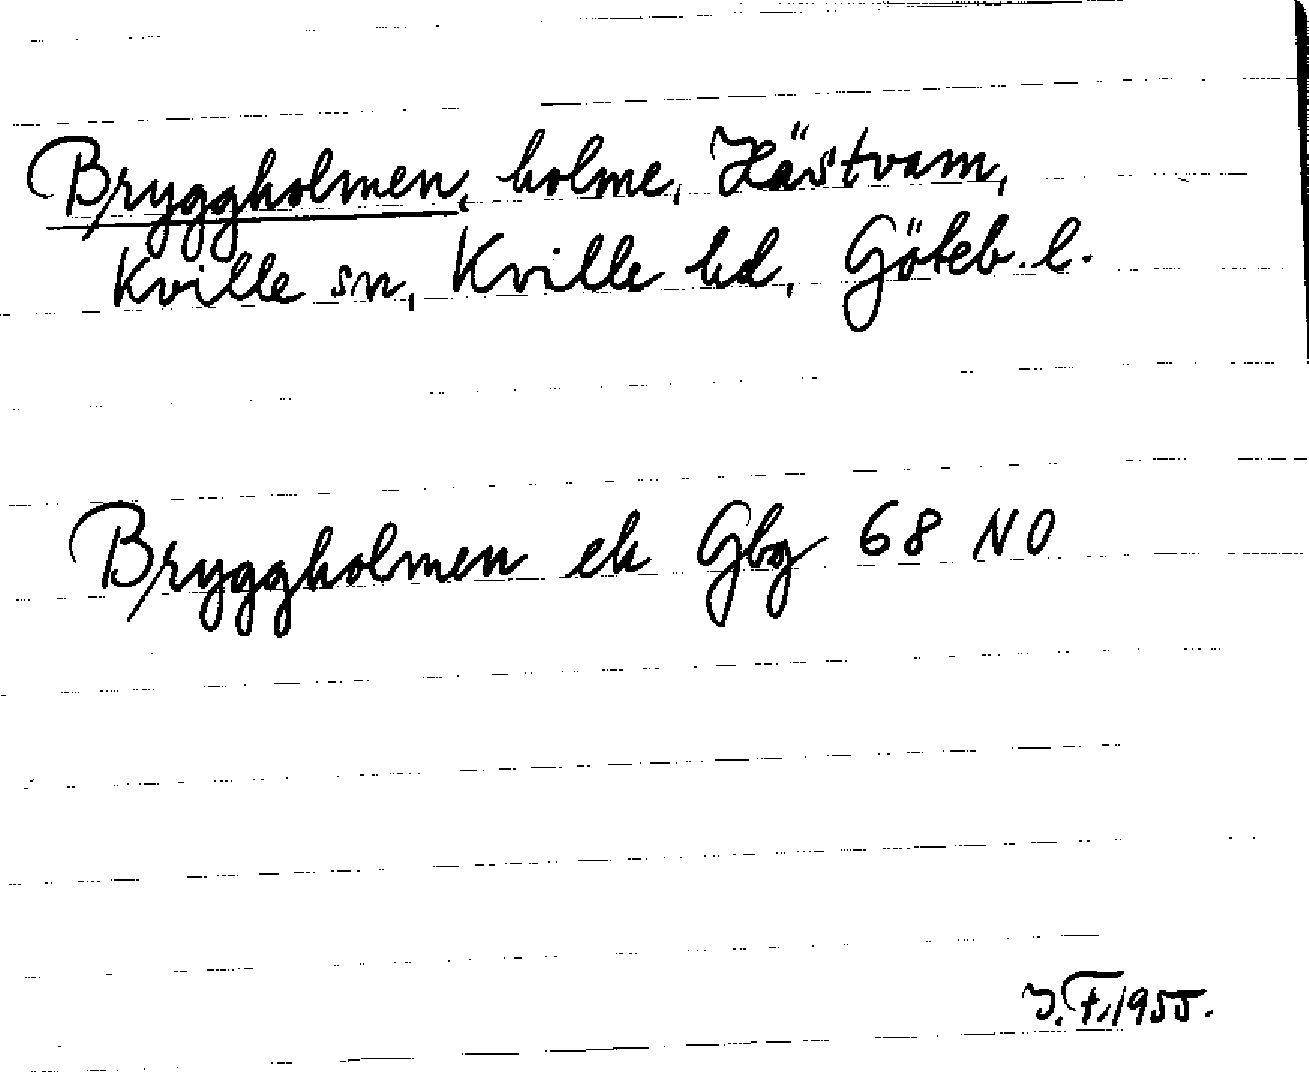 Bryggholmen, holme, Hästvam,
Kville sn, Kville hd, Göteb. l.
Bryggholmen ek Gbg 68 NO
J.F. 1955.